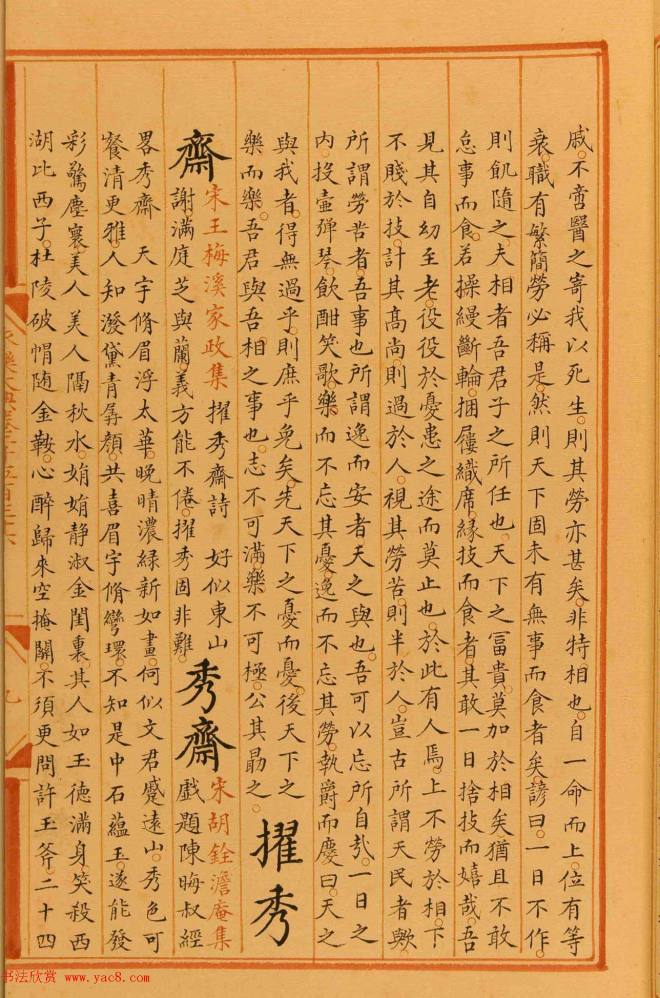 戚。不啻醫之寄我以死生。則其勞亦甚矣。非特相也。自一命而上。位有等
衰。職有繁簡。勞必稱是。然則天下固未有無事而食者矣。諺曰。一日不作。
則飢隨之。夫相者。吾君子之所任也。天下之冨貴。莫加於相矣。猶且不敢
怠事而食。若操縵斷輪。捆屨織席。緣技而食者。其敢一日捨技而嬉哉。吾
見其自幼至老。役役於憂患之途而莫止也。於此有人焉。上不勞於相。下
不賤於技。計其髙尚。則過於人。視其勞苦。則半於人。豈古所謂天民者歟。
所謂勞苦者。吾事也。所謂逸而安者。天之與也。吾可以忘所自㢤。一日之
内。投壺弹琴。飲酣笑歌。樂而不忘其憂。逸而不忘其勞。執爵而慶曰。天之
與我者。得無過乎。則庶乎免矣。先天下之憂而憂。後天下之
樂而樂。吾君與吾相之事也。志不可滿。樂不可極。公其勗之。
擢秀
齋
宋王梅溪家政集 擢秀齋詩 好似東山
謝。滿庭芝與蘭。義方能不倦。擢秀固非難。
秀齋
宋胡銓澹庵集
戲題陳晦叔經
畧秀齋 天宇脩眉浮太華。晚晴濃緑新如畫。何似文君蹙遠山。秀色可
餐清更雅。人知潑黛青孱顔。共喜眉宇脩彎環。不知是中石藴玉。遂能發
彩驚塵寰。美人美人隔秋水。娟娟静淑金閨裏。其人如玉德滿身。笑殺西
湖比西子。杜陵破帽随金鞍。心醉歸來空掩關。不須更問許玉斧。二十四
永樂大典卷二千五百三十六
九
书法欣赏 www.yac8.com